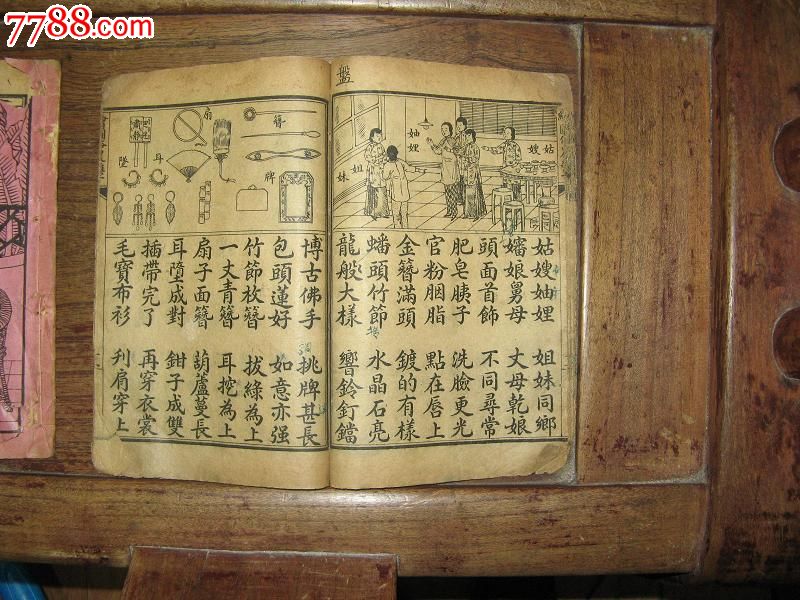 7788.com
盤
妯娌
姑嫂
姐妹
姑嫂妯娌 姐妹同鄉
嬸娘舅母 丈母乾娘
頭面首飾 不同尋常
肥皂胰子 洗臉更光
官粉胭脂 點在唇上
金簪滿頭 鍍的有樣
蟠頭竹節 水晶石亮
龍船大樣 響鈴釘鐺
簪
扇
牌
耳墜
肅靜
博古佛手 挑牌甚長
包頭蓮好 如意亦强
竹節枚簪 拔綠為上
一丈青簪 耳挖為上
扇子面簪 葫蘆蔓長
耳墮成對 鉗子成雙
插帶完了 再穿衣裳
毛寶布衫 刋肩穿上